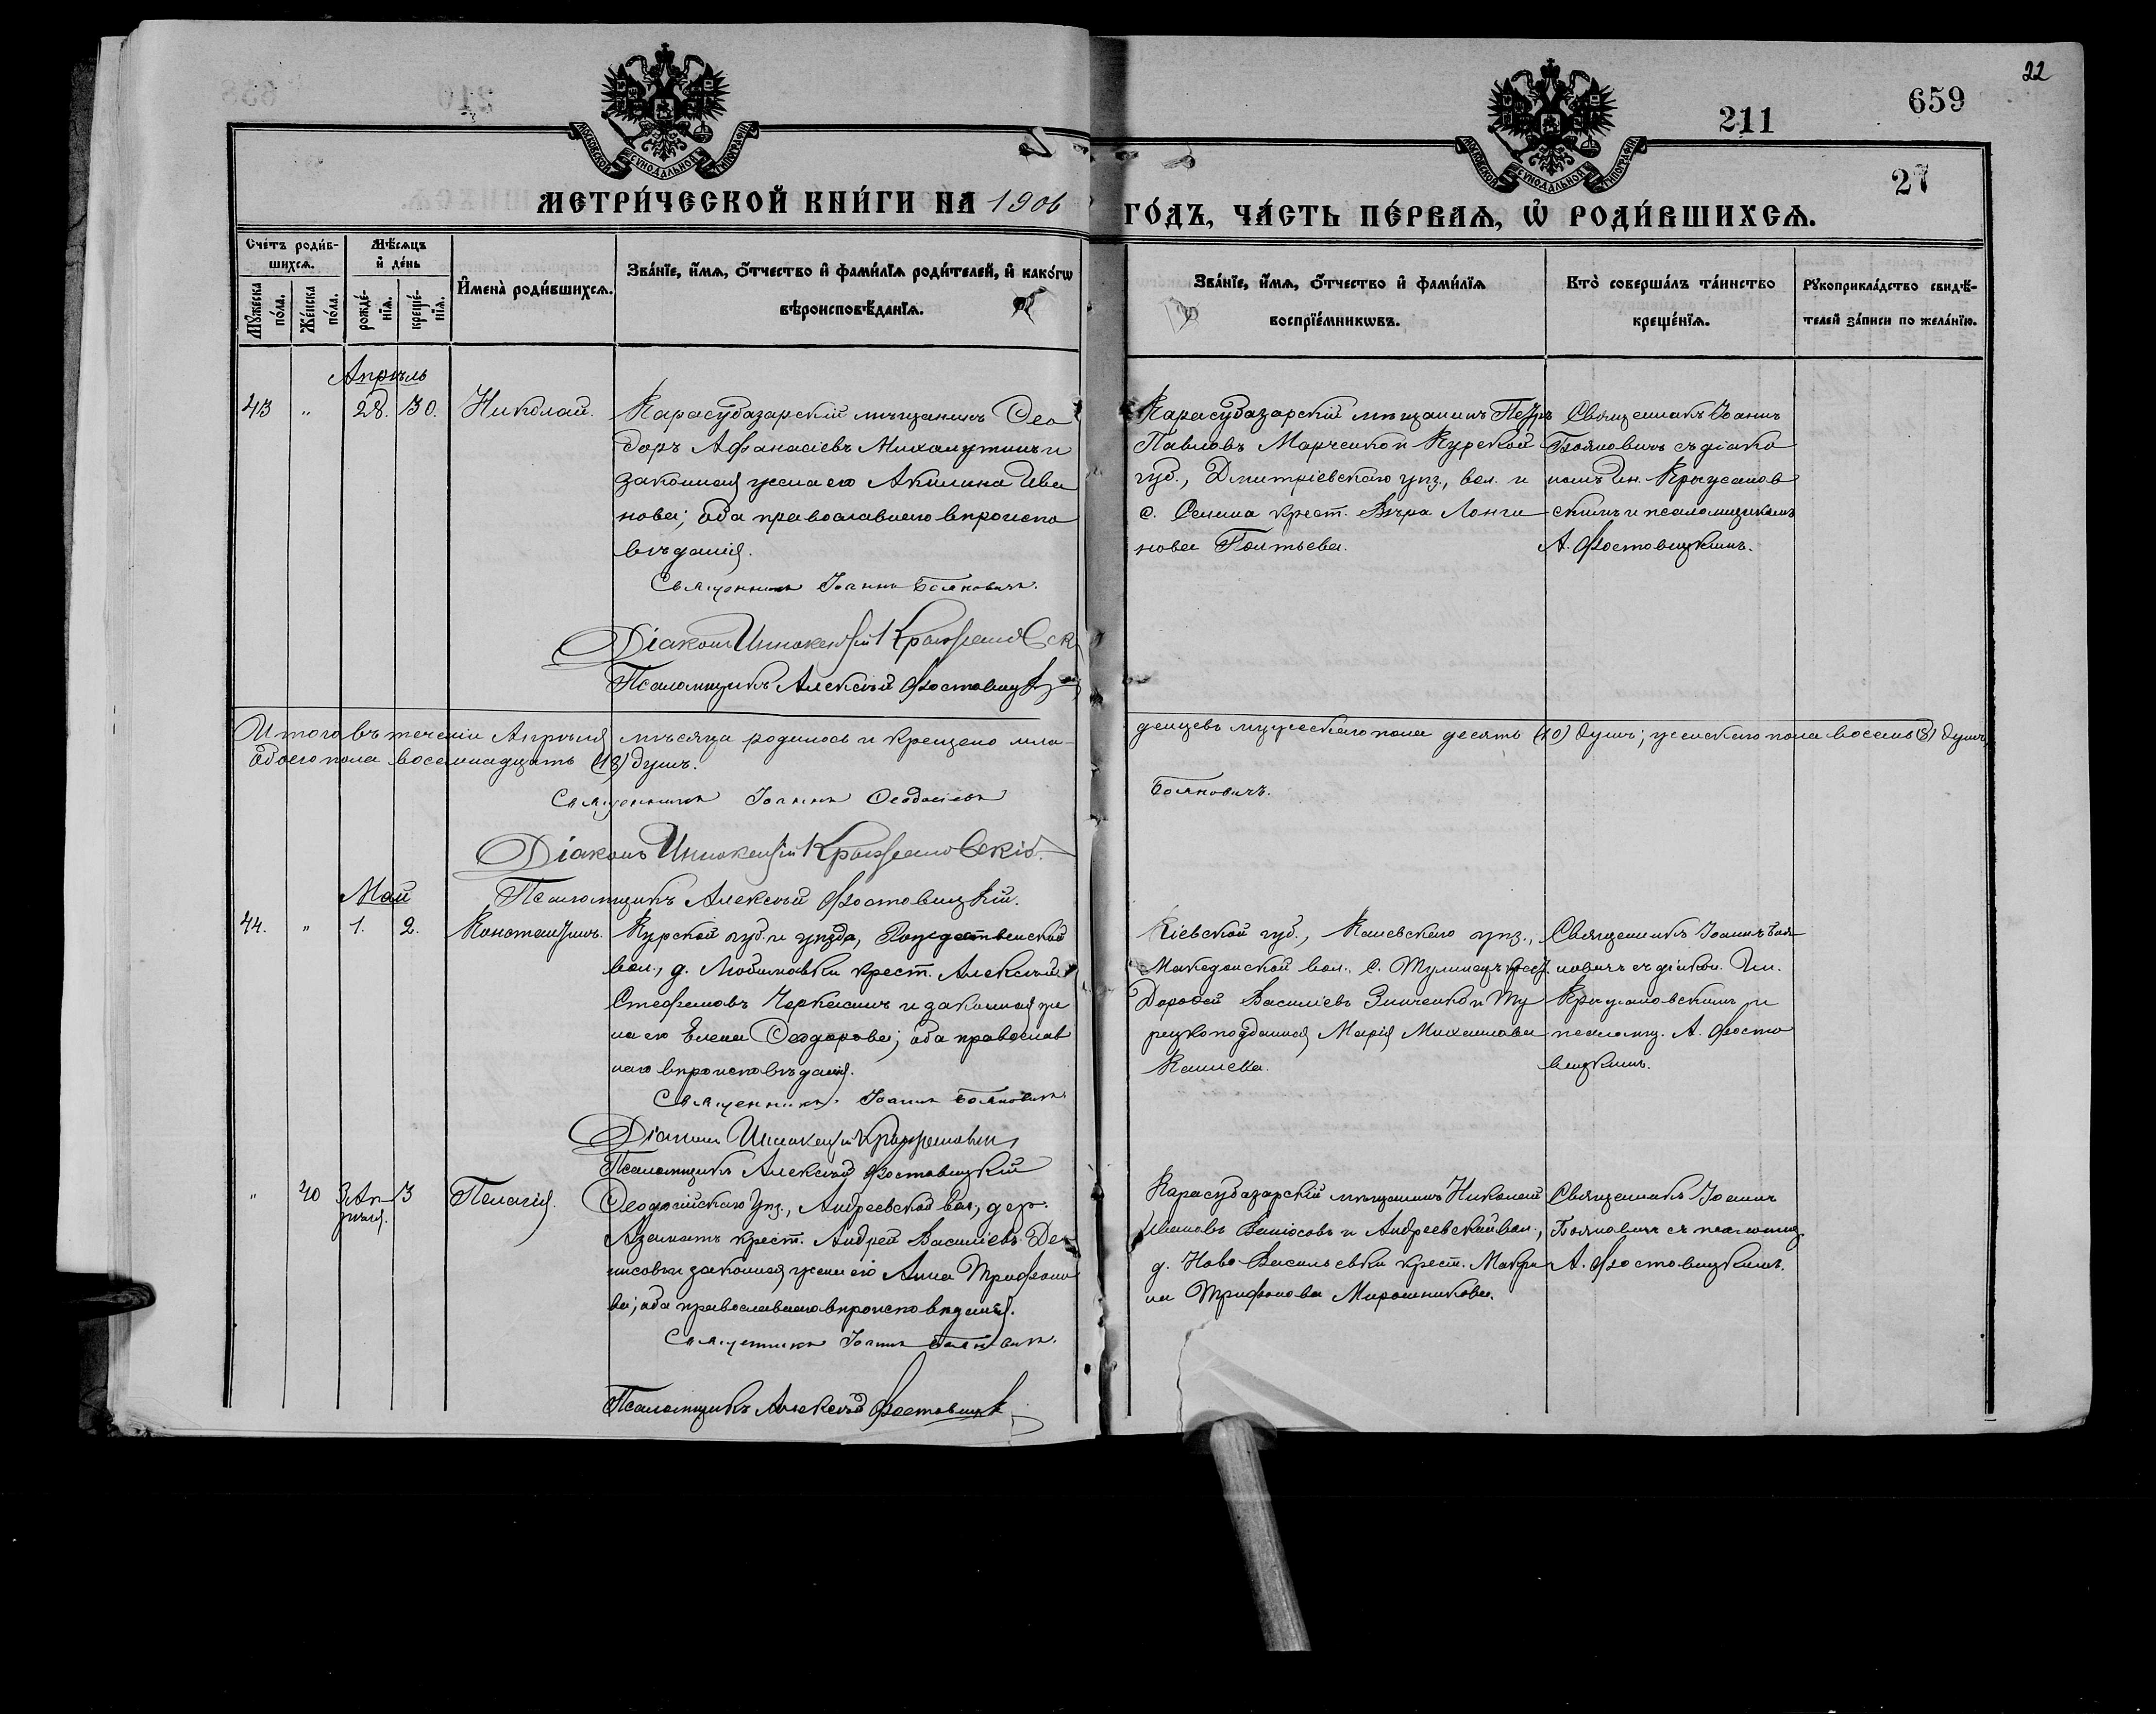 22
659
211
27
МОСКОВСКОЙ СѴНОДАЛЬНОЙ ТИПОГРАФІИ
МОСКОВСКОЙ СѴНОДАЛЬНОЙ ТИПОГРАФІИ
МЕТРИ́ЧЕСКОЙ КНИ́ГИ НА 1906
ГО́ДЪ, ЧА́СТЬ ПЕ́РВАѦ, Ѡ҆ РОДИ́ВШИХСѦ.
Сче́тъ роди́в-
шихсѧ.
Мꙋ́жеска по́ла.
Же́нска по́ла.
Мѣ́сѧцъ
и҆ де́нь
рожде́-нїѧ.
креще́-нїѧ.
И҆мена̀ роди́вшихсѧ.
Зва́нїе, и҆́мѧ, ѻ҆́тчество и҆ фами́лїѧ роди́телей, и҆ како́гѡ
вѣроисповѣ́данїѧ.
Зва́нїе, и҆́мѧ, ѻ҆́тчество и҆ фами́лїѧ
воспрїе́мникѡвъ.
Кто̀ соверша́лъ та́инство
креще́нїѧ.
Рꙋкоприкла́дство свидѣ́-
телей за́писи по жела́нїю.
Апрѣль
43 " 28. 30. Николай.
Карасубазарскій мѣщанинъ Ѳео
доръ Аѳанасіевъ и
законная жена его Акилина Ива
нова; оба православнаго вѣроиспо
вѣданія.
Священникъ Іоаннъ Бояновичъ.
Діаконъ Иннокентій
Псаломщикъ Алексѣй
Карасубазарскій мѣщанинъ Петръ
Павловъ Марченко и Курской
губ., Дмитріевскаго уѣз., вол. и
с. крест. Вѣра Лонги
нова
Священникъ Іоаннъ
Бояновичъ съ діако
номъ Ин. Крыжанов
скимъ и псаломщикомъ
А. Фостовицкимъ.
Итого въ теченіи Апрѣля мѣсяца родилось и крещено мла-
денцевъ мужескаго пола десять (10) душъ; женскаго пола восемь (8) душъ,
обоего пола восемнадцать (18) душъ.
Священникъ Іоаннъ Ѳеодосіевъ
Бояновичъ.
Діаконъ Иннокентій Крыжановскій.
Псаломщикъ Алексѣй Фостовицкій.
Май
44. " 1. 2. Константинъ.
Курской губ. и уѣзда, Рождественской
вол., д. Любимовки крест. Алексѣй
Стефановъ Черкашинъ и законная же
на его Елена Ѳеодорова; оба православ
наго вѣроисповѣданія.
Священникъ Іоаннъ Бояновичъ
Діаконъ Иннокентій
Псаломщикъ Алексѣй Фостовицкій
Кіевской губ., Каневскаго уѣз.,
Македонской вол. с. крест.
Дороѳей Василіевъ Зинченко и Ту
рецкоподданная Марія Михаилова
Священникъ Іоаннъ Боя
новичъ съ діакон. Ин.
Крыжановскимъ и
псаломщ. А. Фосто
вицкимъ.
" 40 Апрѣля. 3 Пелагія.
Ѳеодосійскаго уѣз., Андреевской вол., дер.
Азаматъ крест. Андрей Василіевъ Де
нисовъ и законная жена его Анна Трифоно
ва; оба православнаго вѣроисповѣданія.
Священникъ Іоаннъ Бояновичъ.
Псаломщикъ Алексѣй
Карасубазарскій мѣщанинъ Николай
Ивановъ и Андреевской вол.,
д. Ново-Васильевки крест. Макри
на Трифонова Мирошникова.
Священникъ Іоаннъ
Бояновичъ съ псаломщ.
А. Фостовицкимъ.